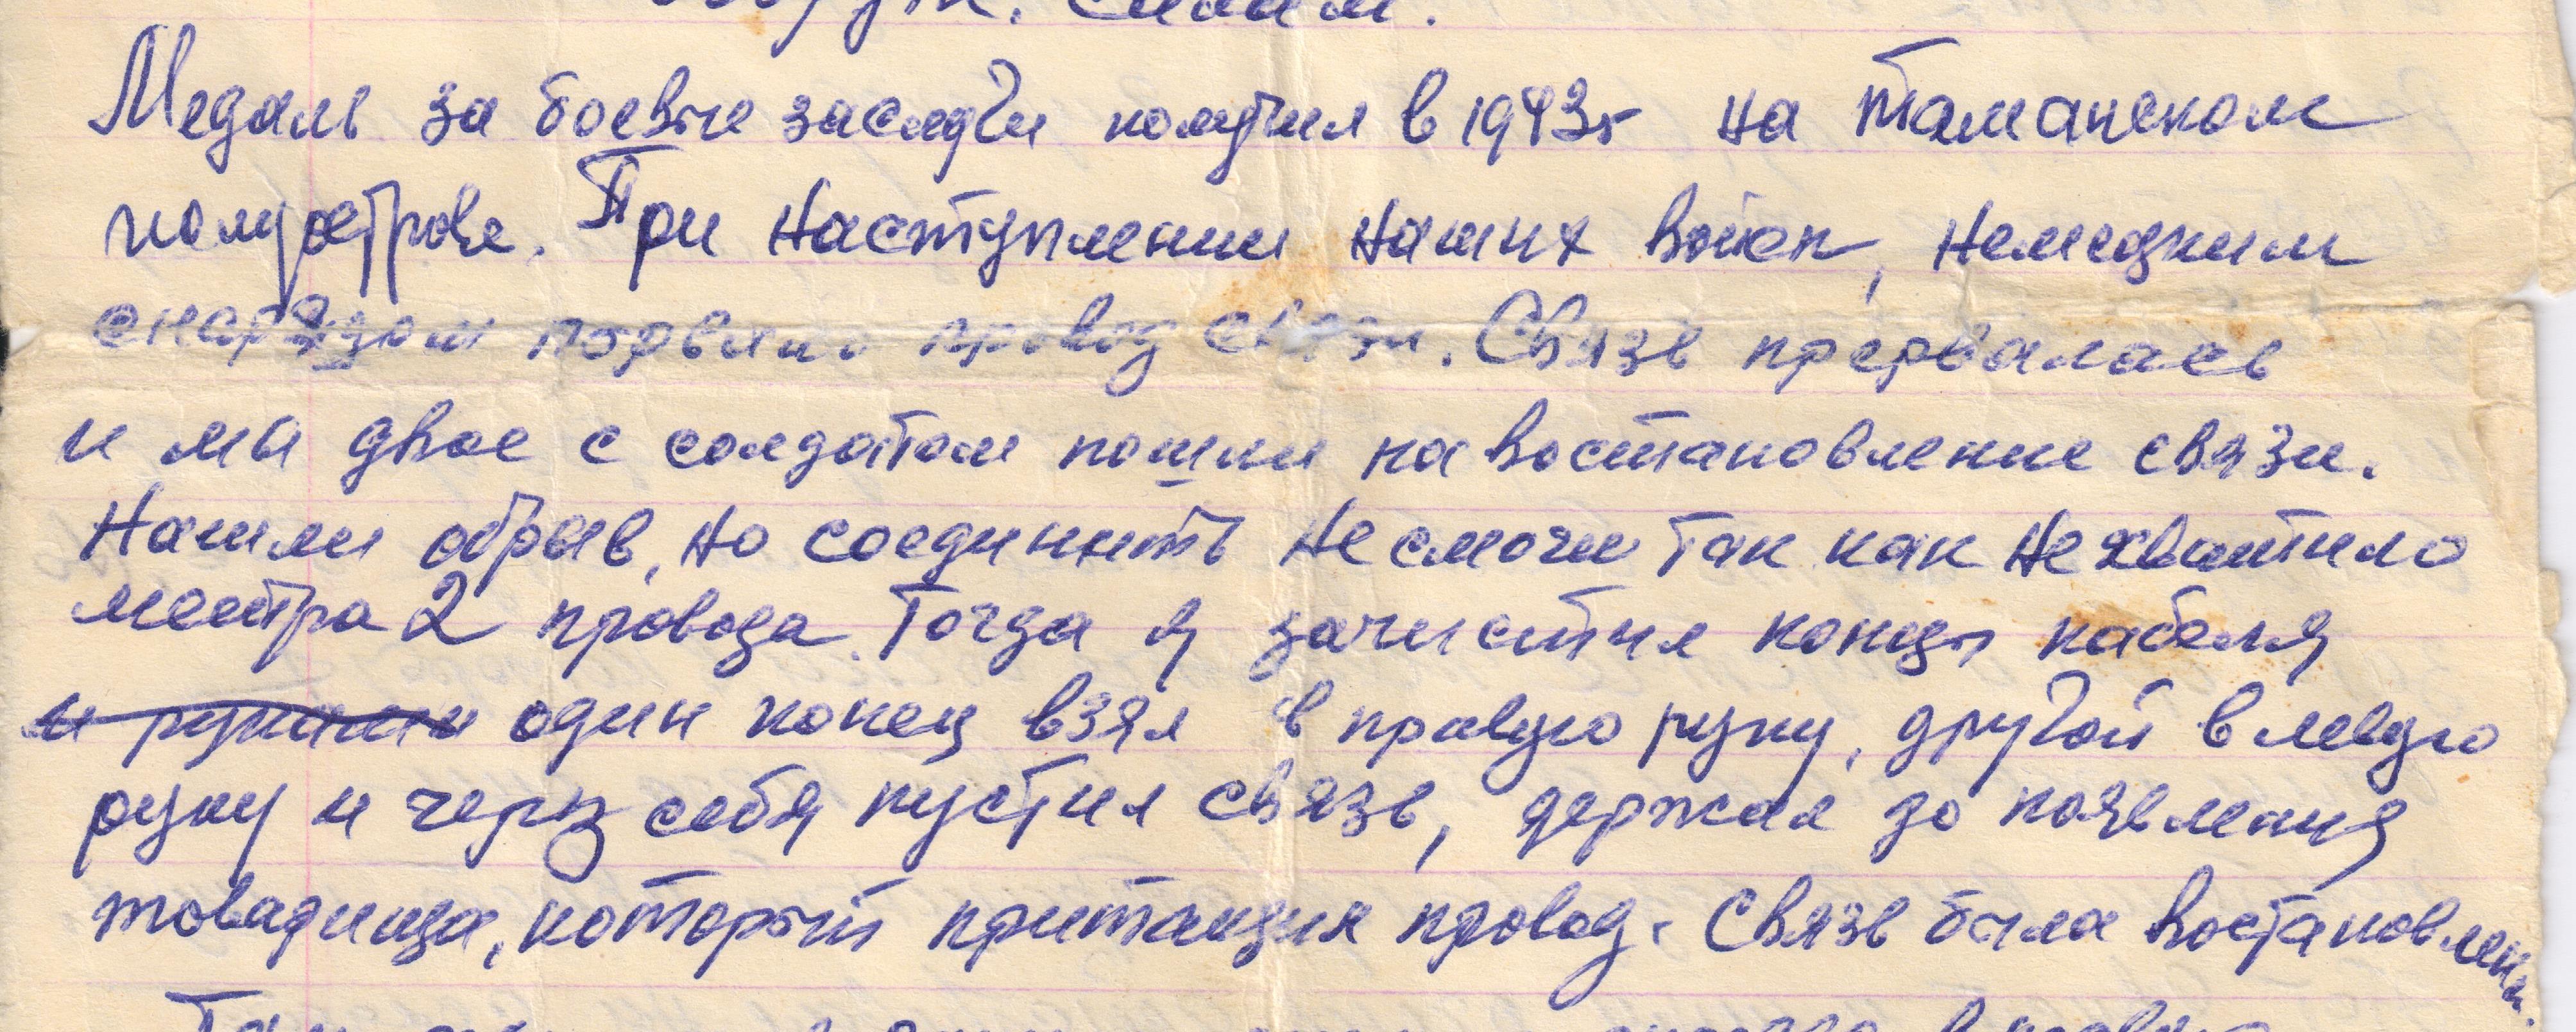 Медаль за боевые заслуги получил в 1943г на Таманском
полуострове. При наступлении наших войск, немецким
снарядом порвало провод связи. Связь прервалась
и мы двое с солдатом пошли на востановление связи.
Нашли обрыв, но соединить не смогли так как не хватило
метра 2 провода. Тогда я зачистил концы кабеля
и руками один конец взял в правую руку, другой в левую
руку и через себя пустил связь, держал до появления
товарища, который притащил провод. Связь была востановлена.